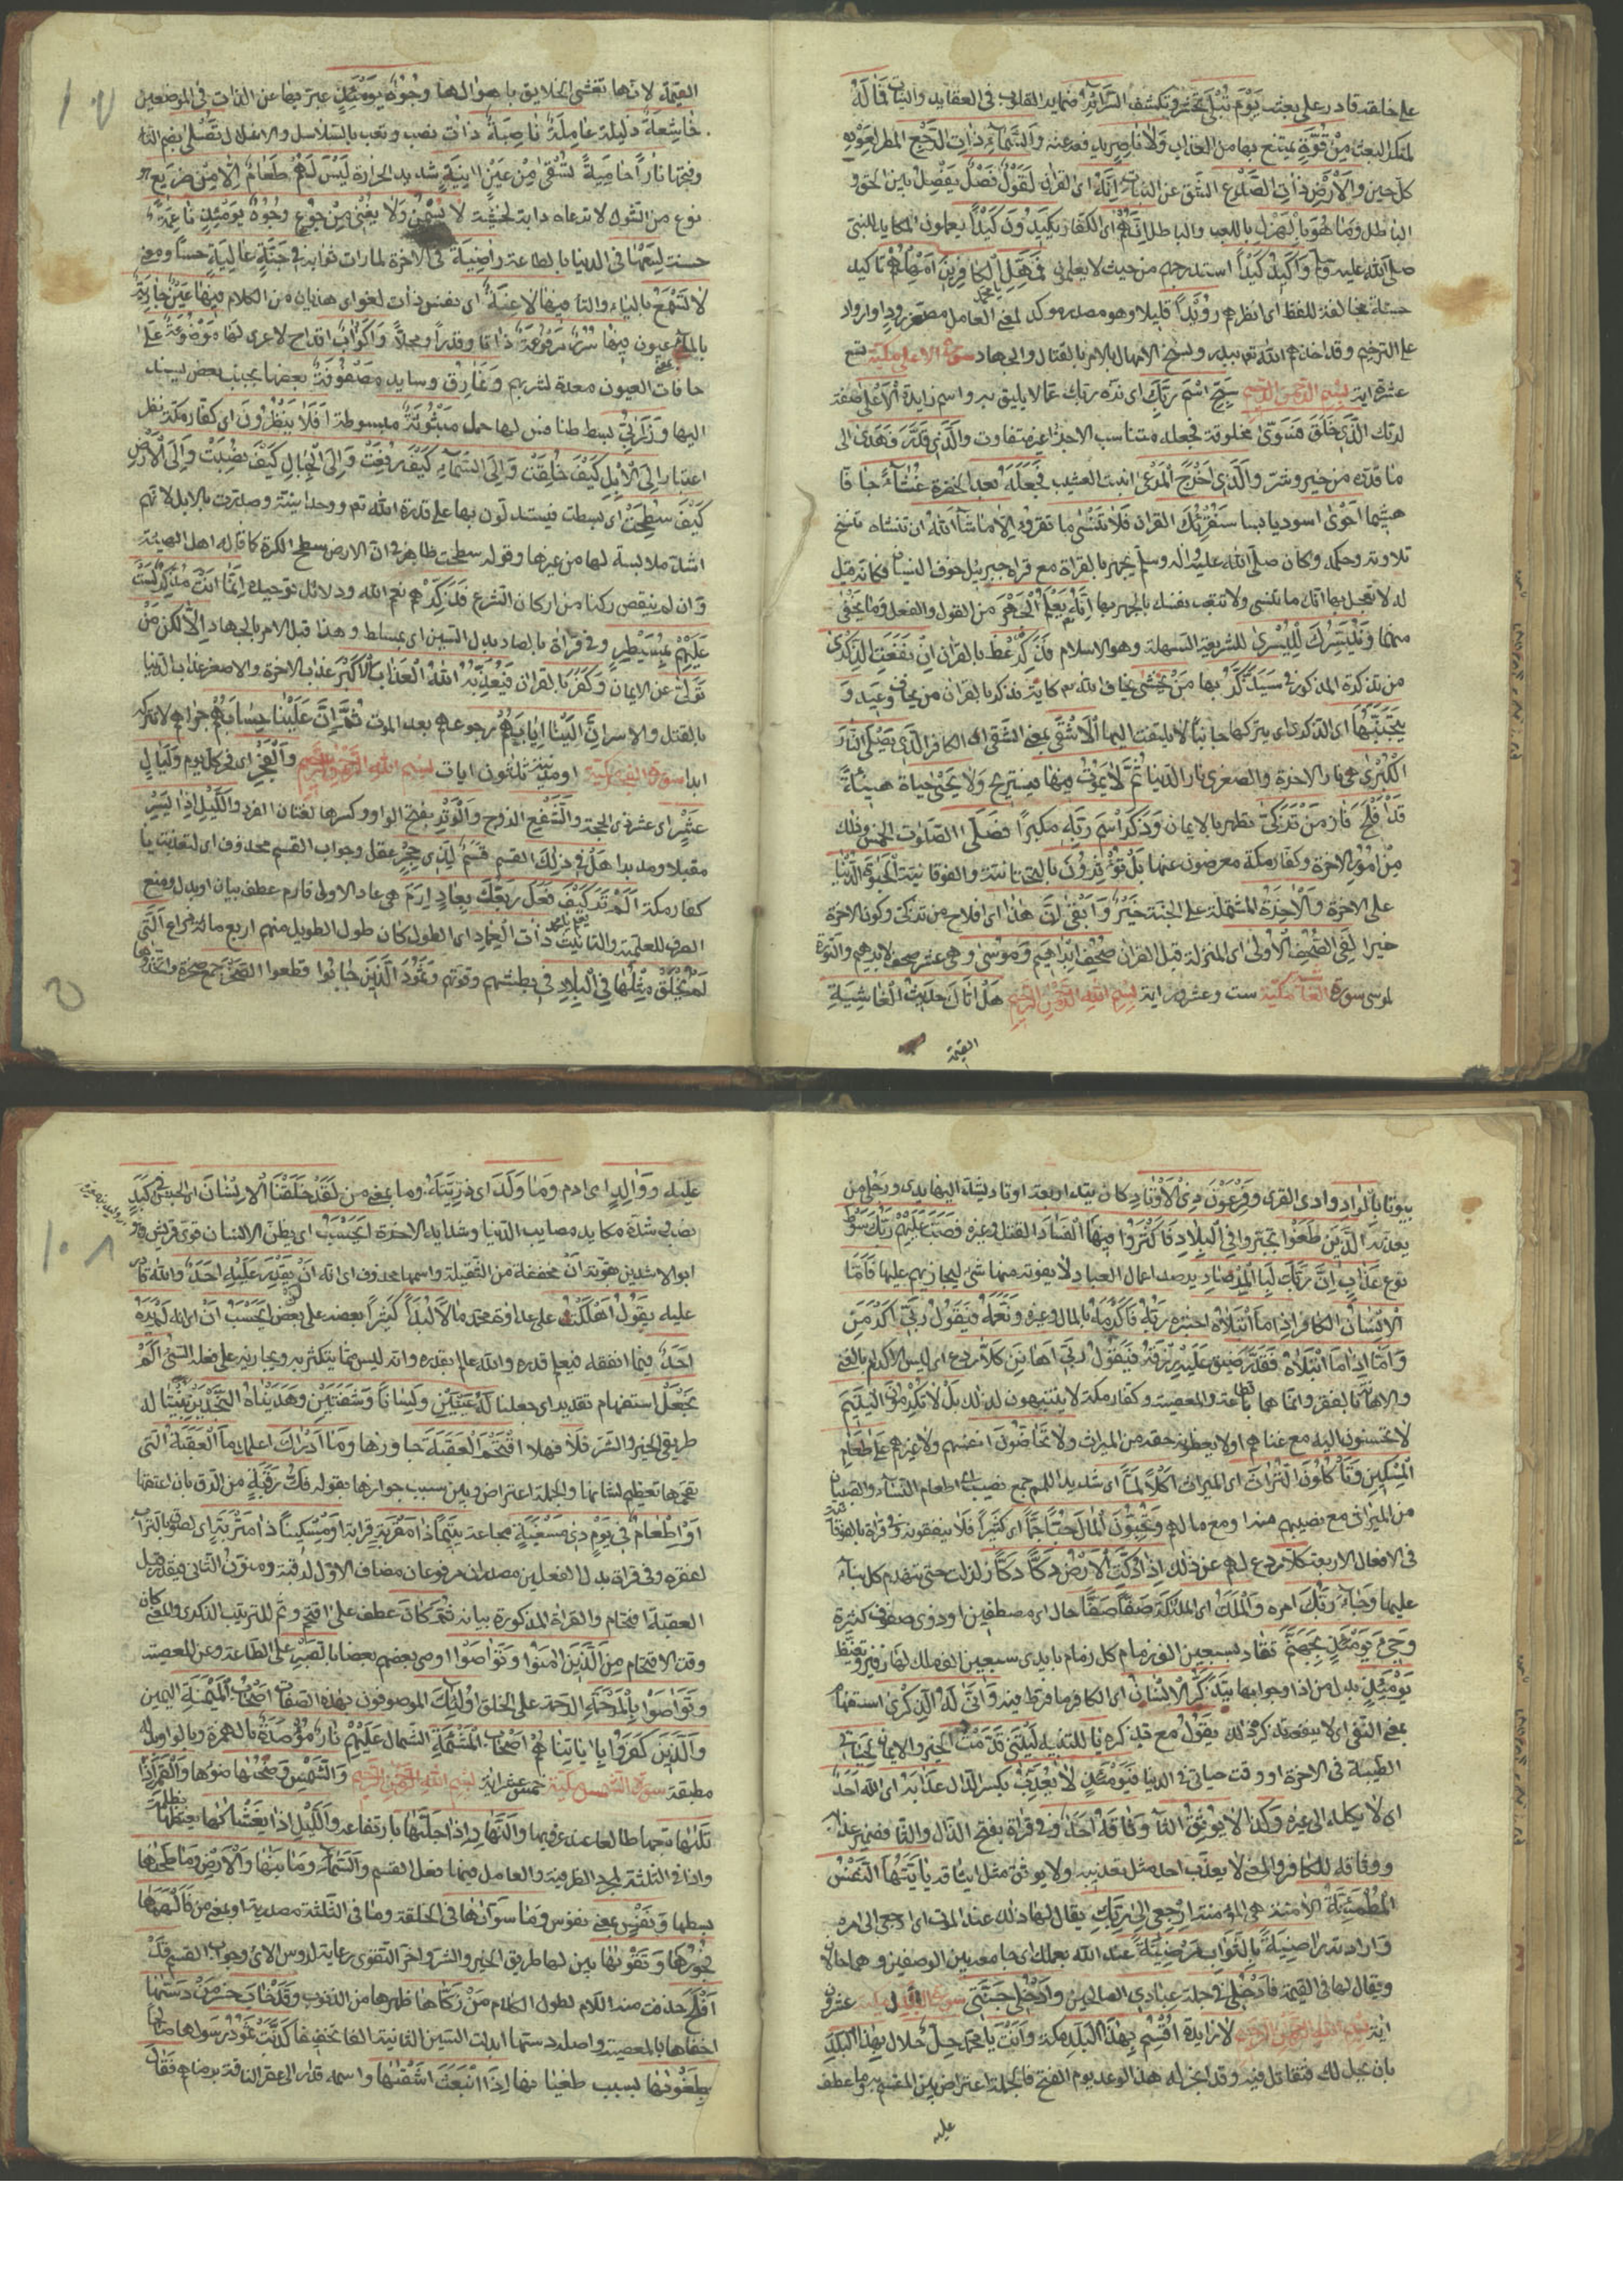 على خلقه قادر على بعثه يَوْمَ تُبْلَى تختبر وتكشف السَّرَائِرُ ضمائر القلوب في العقايد والنيات فَمَا لَهُ
لمنكر البعث مِنْ قُوَّةٍ يمتنع بها من العذاب وَلَا نَاصِرٍ يدفعه عنه وَالسَّمَاءِ ذَاتِ الرَّجْعِ المطر لعوده
كل حين وَالْأَرْضِ ذَاتِ الصَّدْعِ الشق عن النبات إِنَّهُ اى القران لَقَوْلٌ فَصْلٌ يفصل بين الحق و
الباطل وَمَا هُوَ بِالْهَزْلِ باللعب والباطل إِنَّهُمْ اى الكفار يَكِيدُونَ كَيْدًا يعملون المكايد للنبى
صلى الله عليه وَأَكِيدُ كَيْدًا استدرجهم من حيث لا يعلمون فَمَهِّلِ الْكَافِرِينَ أَمْهِلْهُمْ تاكيد
حسنه مخالفة اللفظ اى انظرهم رُوَيْدًا قليلا وهو مصدر موكد لمعنى العامل مصغر رود او ارواد
على الترخيم وقد اخذهم الله تعم ببدر ونسخ الامهال بالامر بالقتال والجهاد سورة الاعلى مكية تسع
عشرة اية بسم الله الرحمن الرحيم سَبِّحِ اسْمَ رَبِّكَ اى نزه ربك عما لا يليق به واسم زايدة الْأَعْلَى صفة
لربك الَّذِي خَلَقَ فَسَوَّى مخلوقه فجعله متناسب الاجزا غير متفاوت وَالَّذِي قَدَّرَ فَهَدَى الى
ما قدره من خير وشر وَالَّذِي أَخْرَجَ الْمَرْعَى انبت العشب فَجَعَلَهُ بعد الخضرة غُثَاءً جافا
هشيما أَحْوَى اسود يابسا سَنُقْرِئُكَ القران فَلَا تَنْسَى ما تقروه إِلَّا مَا شَاءَ اللَّهُ ان تنساه بنسخ
تلاوته وحكمه وكان صلى الله عليه واله وسلم يجهر بالقراة مع قراة جبريل خوف النسيان فكانه قيل
له لا تعجل بها انك ما تنسى ولا تتعب نفسك بالجهر بها إِنَّهُ يَعْلَمُ الْجَهْرَ من القول والفعل وَمَا يَخْفَى
منهما وَنُيَسِّرُكَ لِلْيُسْرَى للشريعة السهلة وهو الاسلام فَذَكِّرْ عظ بالقران إِنْ نَفَعَتِ الذِّكْرَى
من تذكرة المذكور في سَيَذَّكَّرُ بها مَنْ يَخْشَى يخاف الله تم كاية فذكر بالقران من يخاف وعيد وَ
يَتَجَنَّبُهَا اى الذكرى اى يتركها جانبا لا يلتفت اليها الْأَشْقَى بمعنى الشقى اى الكافر الَّذِي يَصْلَى النَّارَ
الْكُبْرَى هى نار الاخرة والصغرى نار الدنيا ثُمَّ لَا يَمُوتُ فِيهَا فيستريح وَلَا يَحْيَى حياة هنيئة
قَدْ أَفْلَحَ فاز مَنْ تَزَكَّى تطهر بالايمان وَذَكَرَ اسْمَ رَبِّهِ مكبرا فَصَلَّى الصلوات الخمس وذلك
من امور الاخرة وكفار مكة معرضون عنها بَلْ تُؤْثِرُونَ بالتحتانية والفوقانية الْحَيَوةَ الدُّنْيَا
على الاخرة وَالْآخِرَةُ المشتملة على الجنة خَيْرٌ وَأَبْقَى إِنَّ هَذَا اى افلاح من تزكى وكون الاخرة
خيرا لَفِي الصُّحُفِ الْأُولَى اى المنزلة قبل القران صُحُفِ إِبْرَاهِيمَ وَمُوسَى وهى عشر صحف لابرهيم والتورة
لموسى سورة الغاشية مكية ست وعشرون اية بسم الله الرحمن الرحيم هَلْ أَتَاكَ حَدِيثُ الْغَاشِيَةِ
القيمة
القيمة لانها تغشى الخلايق باهوالها وُجُوهٌ يَوْمَئِذٍ عبر بها عن الذات في الموضعين
خَاشِعَةٌ ذليلة عَامِلَةٌ نَاصِبَةٌ ذات نصب وتعب بالسلاسل والاغلال تَصْلَى بضم التاء
وفتحها نَارًا حَامِيَةً تُسْقَى مِنْ عَيْنٍ آنِيَةٍ شديد الحرارة لَيْسَ لَهُمْ طَعَامٌ إِلَّا مِنْ ضَرِيعٍ هو
نوع من الشوك لا ترعاه دابة لخبثه لَا يُسْمِنُ وَلَا يُغْنِي مِنْ جُوعٍ وُجُوهٌ يَوْمَئِذٍ نَاعِمَةٌ
حسنة لِسَعْيِهَا في الدنيا بالطاعة رَاضِيَةٌ في الاخرة لما رات ثوابه فِي جَنَّةٍ عَالِيَةٍ حسا ومعنى
لَا تَسْمَعُ بالياء والتا فِيهَا لَاغِيَةً اى نفس ذات لغو اى هذيان من الكلام فِيهَا عَيْنٌ جَارِيَةٌ
بالماء بمعنى عيون فِيهَا سُرُرٌ مَرْفُوعَةٌ ذاتا وقدرا ومحلا وَأَكْوَابٌ اقداح لا عرى لها مَوْضُوعَةٌ على
حافات العيون معدة لشربهم وَنَمَارِقُ وسايد مَصْفُوفَةٌ بعضها بجنب بعض يستند
اليها وَزَرَابِيُّ بسط طنافس لها خمل مَبْثُوثَةٌ مبسوطة أَفَلَا يَنْظُرُونَ اى كفار مكة نظر
اعتبار إِلَى الْإِبِلِ كَيْفَ خُلِقَتْ وَإِلَى السَّمَاءِ كَيْفَ رُفِعَتْ وَإِلَى الْجِبَالِ كَيْفَ نُصِبَتْ وَإِلَى الْأَرْضِ
كَيْفَ سُطِحَتْ اى بسطت فيستدلون بها على قدرة الله تم ووحدانيته وصدرت بالابل لانهم
اشد ملابسة لها من غيرها وقوله سطحت ظاهر في ان الارض سطح لا كرة كما قاله اهل الهيئة
وان لم ينقص ركنا من اركان الشرع فَذَكِّرْ هم نعم الله ودلائل توحيده إِنَّمَا أَنْتَ مُذَكِّرٌ لَسْتَ
عَلَيْهِمْ بِمُسَيْطِرٍ وفي قراة بالصاد بدل السين اى بمسلط وهذا قبل الامر بالجهاد إِلَّا لكن مَنْ
تَوَلَّى عن الايمان وَكَفَرَ بالقران فَيُعَذِّبُهُ اللَّهُ الْعَذَابَ الْأَكْبَرَ عذاب الاخرة والاصغر عذاب الدنيا
بالقتل والاسر إِنَّ إِلَيْنَا إِيَابَهُمْ رجوعهم بعد الموت ثُمَّ إِنَّ عَلَيْنَا حِسَابَهُمْ جزاهم لا نتركه
ابدا سورة الفجر مكية او مدنية ثلثون ايات بسم الله الرحمن الرحيم وَالْفَجْرِ اى فجر كل يوم وَلَيَالٍ
عَشْرٍ اى عشر ذى الحجة وَالشَّفْعِ الزوج وَالْوَتْرِ بفتح الواو وكسرها لغتان الفرد وَاللَّيْلِ إِذَا يَسْرِ
مقبلا ومدبرا هَلْ فِي ذَلِكَ القسم قَسَمٌ لِذِي حِجْرٍ عقل وجواب القسم محذوف اى لتعذبن يا
كفار مكة أَلَمْ تَرَ كَيْفَ فَعَلَ رَبُّكَ بِعَادٍ إِرَمَ هى عاد الاولى فارم عطف بيان او بدل ومنع
الصرف للعلمية والتانيث ذَاتِ الْعِمَادِ اى الطول كان طول الطويل منهم اربع مائة ذراع الَّتِي
لَمْ يُخْلَقْ مِثْلُهَا فِي الْبِلَادِ في بطشهم وقوتهم وَثَمُودَ الَّذِينَ جَابُوا قطعوا الصَّخْرَ جمع صخرة واتخذوها
بيوتا بِالْوَادِ وادى القرى وَفِرْعَوْنَ ذِي الْأَوْتَادِ كان يتد اربعة اوتاد يشد اليها يدى ورجلى من
يعذبه الَّذِينَ طَغَوْا تجبروا فِي الْبِلَادِ فَأَكْثَرُوا فِيهَا الْفَسَادَ القتل وغيره فَصَبَّ عَلَيْهِمْ رَبُّكَ سَوْطَ
نوع عَذَابٍ إِنَّ رَبَّكَ لَبِالْمِرْصَادِ يرصد اعمال العباد لا يفوته منها شئ ليجازيهم عليها فَأَمَّا
الْإِنْسَانُ الكافر إِذَا مَا ابْتَلَاهُ اختبره رَبُّهُ فَأَكْرَمَهُ بالمال وغيره وَنَعَّمَهُ فَيَقُولُ رَبِّي أَكْرَمَنِ
وَأَمَّا إِذَا مَا ابْتَلَاهُ فَقَدَرَ ضيق عَلَيْهِ رِزْقَهُ فَيَقُولُ رَبِّي أَهَانَنِ كَلَّا ردع اى ليس الاكرام بالغنى
والاهانة بالفقر وانما هما بالطاعة والمعصية وكفار مكة لا ينتبهون لذلك بَلْ لَا تُكْرِمُونَ الْيَتِيمَ
لا يحسنون اليه مع غناهم او لا يعطونه حقه من الميراث وَلَا تَحَاضُّونَ انفسهم ولا غيرهم عَلَى طَعَامِ
الْمِسْكِينِ وَتَأْكُلُونَ التُّرَاثَ اى الميراث أَكْلًا لَمًّا اى شديدا للمهم نصيب النساء والصبيان
من الميراث مع نصيبهم منه او مع مالهم وَتُحِبُّونَ الْمَالَ حُبًّا جَمًّا اى كثيرا فلا ينفقونه وفي قراة بالفوقانية
في الافعال الاربعة كَلَّا ردع لهم عن ذلك إِذَا دُكَّتِ الْأَرْضُ دَكًّا دَكًّا زلزلت حتى ينهدم كل بناء
عليها وَجَاءَ رَبُّكَ امره وَالْمَلَكُ اى الملئكة صَفًّا صَفًّا حال اى مصطفين او ذوى صفوف كثيرة
وَجِيءَ يَوْمَئِذٍ بِجَهَنَّمَ تقاد بسبعين الف زمام كل زمام بايدى سبعين الف ملك لها زفير وتغيظ
يَوْمَئِذٍ بدل من اذا وجوابها يَتَذَكَّرُ الْإِنْسَانُ اى الكافر ما فرط فيه وَأَنَّى لَهُ الذِّكْرَى استفهام
بمعنى النفى اى لا ينفعه تذكره ذلك يَقُولُ مع تذكره يَا للتنبيه لَيْتَنِي قَدَّمْتُ الخير والايمان لِحَيَاتِي
الطيبة في الاخرة او وقت حياتى في الدنيا فَيَوْمَئِذٍ لَا يُعَذِّبُ بكسر الذال عَذَابَهُ اى الله أَحَدٌ
اى لا يكله الى غيره وَكذا لَا يُوثِقُ الثا وَثَاقَهُ أَحَدٌ وفي قراة بفتح الذال والثا فضمير عذابه
ووثاقه للكافر والمعنى لا يعذب احد مثل تعذيبه ولا يوثق مثل ايثاقه يَا أَيَّتُهَا النَّفْسُ
الْمُطْمَئِنَّةُ الآمنة هى المؤمنة ارْجِعِي إِلَى رَبِّكِ يقال لها ذلك عند الموت اى ارجعى الى امره
وارادته رَاضِيَةً بالثواب مَرْضِيَّةً عند الله بعملك اى جامعة بين الوصفين وهما حالان
ويقال لها في القيمة فَادْخُلِي فِي جملة عِبَادِي الصالحين وَادْخُلِي جَنَّتِي سورة البلد مكية عشرون
اية بسم الله الرحمن الرحيم لَا زايدة أُقْسِمُ بِهَذَا الْبَلَدِ مكة وَأَنْتَ يا محمد حِلٌّ حلال بِهَذَا الْبَلَدِ
بان يحل لك فتقاتل فيه وقد انجز له هذا الوعد يوم الفتح فالجملة اعتراض بين المقسم به وما عطف
عليه
عليه وَوَالِدٍ اى ادم وَمَا وَلَدَ اى ذريته وما بمعنى من لَقَدْ خَلَقْنَا الْإِنْسَانَ اى الجنس فِي كَبَدٍ
نصب وشدة مكايد مصايب الدنيا وشدايد الاخرة أَيَحْسَبُ اى يظن الانسان قوى قريش وهو
ابو الاشدين بقوته أَنْ مخففة من الثقيلة واسمها محذوف اى انه لَنْ يَقْدِرَ عَلَيْهِ أَحَدٌ والله قادر
عليه يَقُولُ أَهْلَكْتُ على عداوة محمد مَالًا لُبَدًا كثيرا بعضه على بعض أَيَحْسَبُ أَنْ اى انه لَمْ يَرَهُ
أَحَدٌ فيما انفقه فيعلم قدره والله عالم بقدره وانه ليس مما يتكثر به ويجازيه على فعله السئ أَلَمْ
نَجْعَلْ استفهام تقرير اى جعلنا لَهُ عَيْنَيْنِ وَلِسَانًا وَشَفَتَيْنِ وَهَدَيْنَاهُ النَّجْدَيْنِ بينا له
طريقى الخير والشر فَلَا فهلا اقْتَحَمَ الْعَقَبَةَ جاوزها وَمَا أَدْرَاكَ اعلمك مَا الْعَقَبَةُ التى
يقتحمها تعظيم لشانها والجملة اعتراض وبين سبب جوازها بقوله فَكُّ رَقَبَةٍ من الرق بان اعتقها
أَوْ إِطْعَامٌ فِي يَوْمٍ ذِي مَسْغَبَةٍ مجاعة يَتِيمًا ذَا مَقْرَبَةٍ قرابة أَوْ مِسْكِينًا ذَا مَتْرَبَةٍ اى لصوق بالتراب
لفقره وفي قراة بدل الفعلين مصدران مرفوعان مضاف الاول لرقبة ومنون الثانى فيقدر قبل
العقبة اقتحام والقراة المذكورة بيانه ثُمَّ كَانَ عطف على اقتحم وثم للترتيب الذكرى والمعنى كان
وقت الاقتحام مِنَ الَّذِينَ آمَنُوا وَتَوَاصَوْا اوصى بعضهم بعضا بِالصَّبْرِ على الطاعة وعن المعصية
وَتَوَاصَوْا بِالْمَرْحَمَةِ الرحمة على الخلق أُولَئِكَ الموصوفون بهذه الصفات أَصْحَابُ الْمَيْمَنَةِ اليمين
وَالَّذِينَ كَفَرُوا بِآيَاتِنَا هُمْ أَصْحَابُ الْمَشْئَمَةِ الشمال عَلَيْهِمْ نَارٌ مُؤْصَدَةٌ بالهمزة وبالواو بدله
مطبقة سورة الشمس مكية خمس عشر اية بسم الله الرحمن الرحيم وَالشَّمْسِ وَضُحَيهَا ضوئها وَالْقَمَرِ إِذَا
تَلَيهَا تبعها طالعا عند غروبها وَالنَّهَارِ إِذَا جَلَّيهَا بارتفاعه وَاللَّيْلِ إِذَا يَغْشَيهَا يغطيها بظلمته
واذا في الثلثة لمجرد الظرفية والعامل فيها فعل القسم وَالسَّمَاءِ وَمَا بَنَيهَا وَالْأَرْضِ وَمَا طَحَيهَا
بسطها وَنَفْسٍ بمعنى نفوس وَمَا سَوَّاهَا في الخلقة وما في الثلثة مصدرية او بمعنى من فَأَلْهَمَهَا
فُجُورَهَا وَتَقْوَيهَا بين لها طريق الخير والشر واخر التقوى رعاية لروس الاى وجواب القسم قَدْ
أَفْلَحَ حذفت منه اللام لطول الكلام مَنْ زَكَّاهَا طهرها من الذنوب وَقَدْ خَابَ خسر مَنْ دَسَّيهَا
اخفاها بالمعصية واصله دسسها ابدلت السين الثانية الفا تخفيفا كَذَّبَتْ ثَمُودُ رسولها صالحا
بِطَغْوَيهَا بسبب طغيانها إِذِ انْبَعَثَ أَشْقَيهَا واسمه قدار الى عقر الناقة برضاهم فَقَالَ